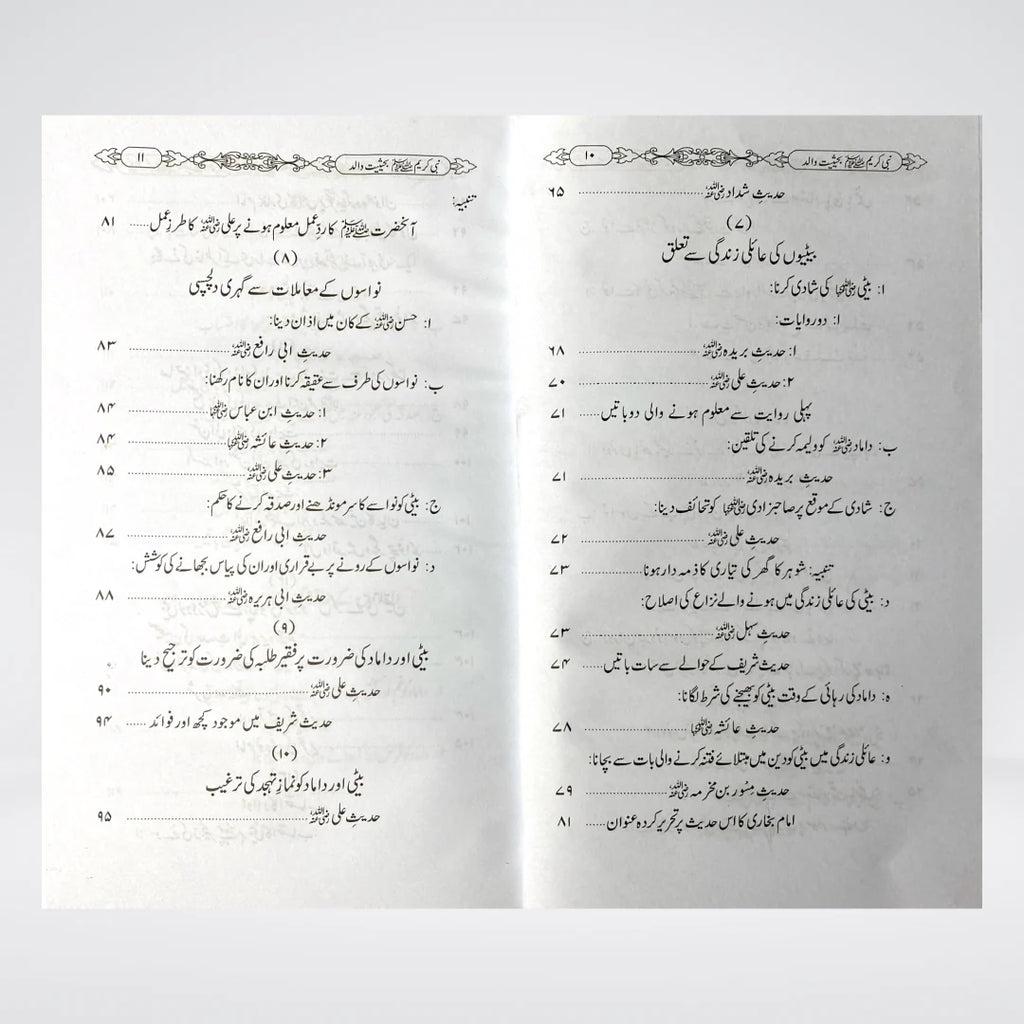 نبی کریم ﷺ بحیثیت والد
۱۰
حدیثِ شداد رضی اللہ عنہ ........................ ۶۵
(۷)
بیٹیوں کی عائلی زندگی سے تعلق
ا: بیٹی رضی اللہ عنہا کی شادی کرنا:
ا: دو روایات:
۱: حدیثِ بریدہ رضی اللہ عنہ ........................ ۶۸
۲: حدیثِ علی رضی اللہ عنہ ........................ ۷۰
پہلی روایت سے معلوم ہونے والی دو باتیں ...... ۷۱
ب: داماد رضی اللہ عنہ کو ولیمہ کرنے کی تلقین:
حدیثِ بریدہ رضی اللہ عنہ ........................ ۷۱
ج: شادی کے موقع پر صاحبزادی رضی اللہ عنہا کو تحائف دینا:
حدیثِ علی رضی اللہ عنہ ........................ ۷۲
تنبیہ: شوہر کا گھر کی تیاری کا ذمہ دار ہونا ............ ۷۳
د: بیٹی کی عائلی زندگی میں ہونے والے نزاع کی اصلاح:
حدیثِ سہل رضی اللہ عنہ ........................ ۷۳
حدیث شریف کے حوالے سے سات باتیں ...... ۷۴
ہ: داماد کی رہائی کے وقت بیٹی کو بھیجنے کی شرط لگانا:
حدیثِ عائشہ رضی اللہ عنہا ........................ ۷۸
و: عائلی زندگی میں بیٹی کو دین میں مبتلائے فتنہ کرنے والی بات سے بچانا:
حدیثِ مِسْور بن مخرمہ رضی اللہ عنہ ........................ ۷۹
امام بخاری کا اس حدیث پر تحریر کردہ عنوان ...... ۸۱
نبی کریم ﷺ بحیثیت والد
۱۱
تنبیہ:
آنحضرت ﷺ کا ردِّ عمل معلوم ہونے پر علی رضی اللہ عنہ کا طرزِ عمل ..... ۸۱
(۸)
نواسوں کے معاملات سے گہری دلچسپی
ا: حسن رضی اللہ عنہ کے کان میں اذان دینا:
حدیثِ ابی رافع رضی اللہ عنہ ........................ ۸۳
ب: نواسوں کی طرف سے عقیقہ کرنا اور ان کا نام رکھنا:
۱: حدیثِ ابن عباس رضی اللہ عنہا ........................ ۸۴
۲: حدیثِ عائشہ رضی اللہ عنہا ........................ ۸۴
۳: حدیثِ علی رضی اللہ عنہ ........................ ۸۵
ج: بیٹی کو نواسے کا سر مونڈھنے اور صدقہ کرنے کا حکم:
حدیثِ ابی رافع رضی اللہ عنہ ........................ ۸۷
د: نواسوں کے رونے پر بے قراری اور ان کی پیاس بجھانے کی کوشش:
حدیثِ ابی ہریرہ رضی اللہ عنہ ........................ ۸۸
(۹)
بیٹی اور داماد کی ضرورت پر فقیر طلبہ کی ضرورت کو ترجیح دینا
حدیثِ علی رضی اللہ عنہ ........................ ۹۰
حدیث شریف میں موجود کچھ اور فوائد ...... ۹۴
(۱۰)
بیٹی اور داماد کو نمازِ تہجد کی ترغیب
حدیثِ علی رضی اللہ عنہ ........................ ۹۵